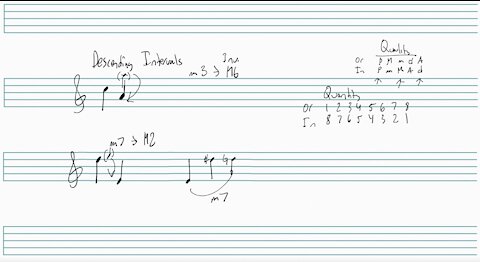 Quality
Or P M m d A
In P m M A d
Descending Intervals Inv.
m3 → M6
Quantity
Or 1 2 3 4 5 6 7 8
In 8 7 6 5 4 3 2 1
m7 → M2
m7